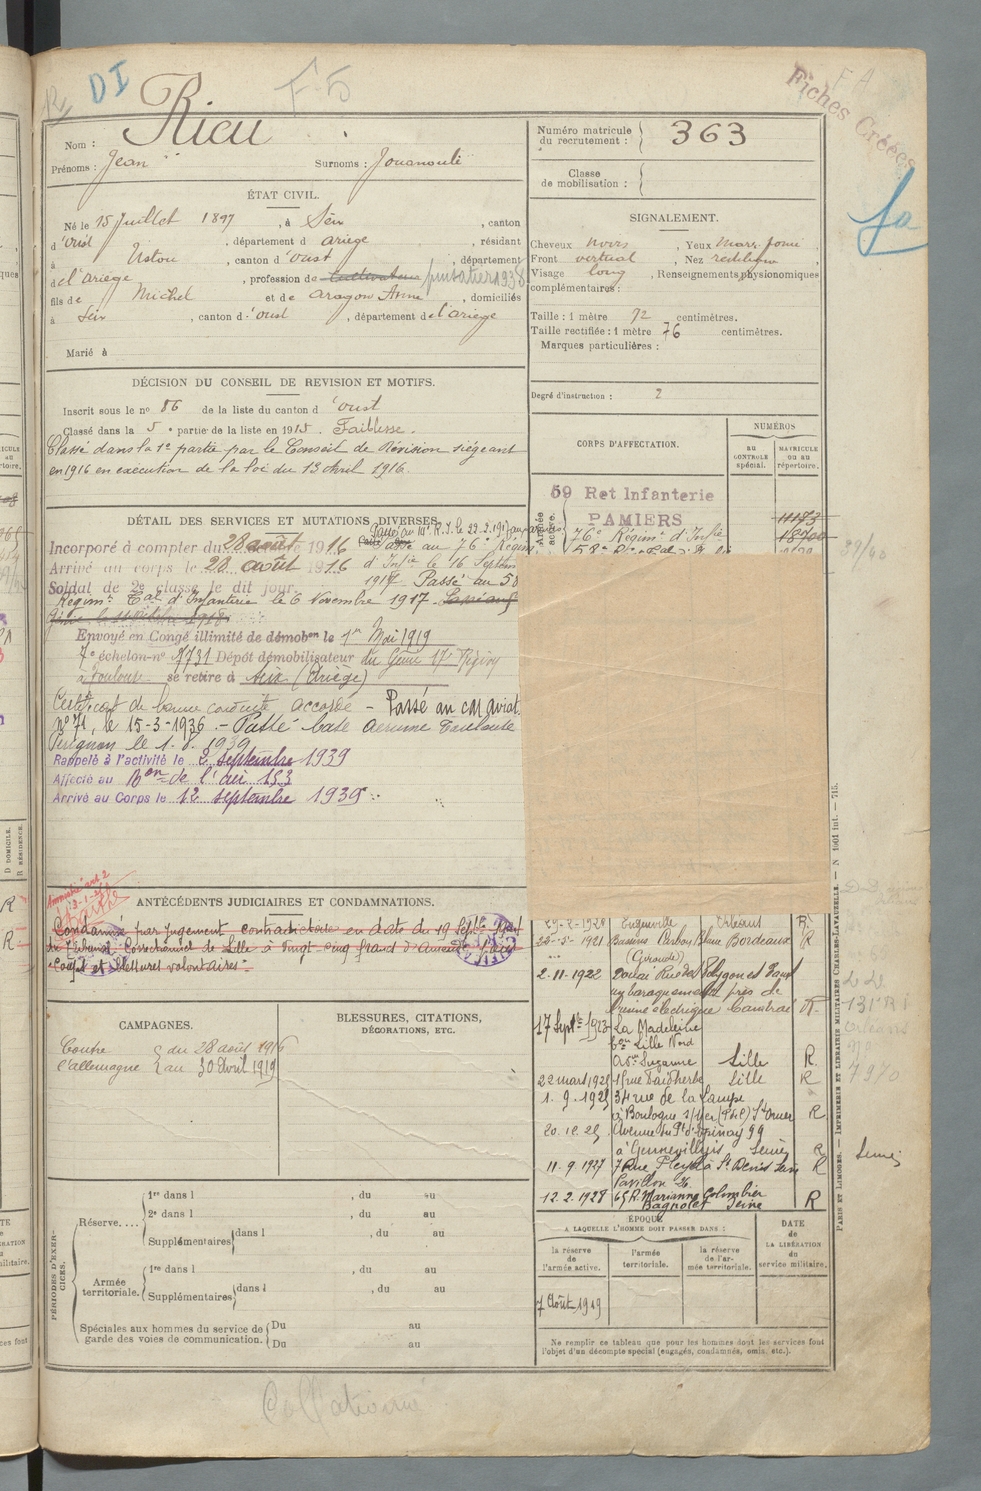 DI
F-5
F A
Fiches Créées
Rieu
Nom :
Prénoms : Jean
Surnoms : Jouanoulé
Numéro matricule du recrutement : 363
Classe de mobilisation :
ÉTAT CIVIL.
Né le 15 Juillet 1897, à Seix, canton
d'oust, département d ariege, résidant
à Ustou, canton d'oust, département
d el'ariege, profession de cultivateur
fils de Michel et de aragon Anne, domiciliés
à Seix, canton d'oust, département de l'ariege
Marié à
SIGNALEMENT.
Cheveux noirs, Yeux marr.
Front vertical, Nez rectiligne
Visage long, Renseignements physionomiques
complémentaires :
Taille : 1 mètre 72 centimètres.
Taille rectifiée : 1 mètre 76 centimètres.
Marques particulières :
Degré d'instruction : 2
DÉCISION DU CONSEIL DE REVISION ET MOTIFS.
Inscrit sous le no 86 de la liste du canton d'oust
Classé dans la 5e partie de la liste en 1915. Faiblesse.
Classé dans la 1e partie par le Conseil de Révision siégeant
en 1916 en exécution de la loi du 13 Avril 1916.
CORPS D'AFFECTATION.
NUMÉROS
AU CONTROLE spécial.
MATRICULE OU AU répertoire.
Armée active.
59 Ret Infanterie
PAMIERS
11173
76e Régimt d'Infie
18700
DÉTAIL DES SERVICES ET MUTATIONS DIVERSES.
Incorporé à compter du 28 août 1916
Passé au 76e Régim
Arrivé au corps le 28 août 1916
d'Infie le 16 Septem
Soldat de 2e classe le dit jour.
1917. Passé au 58
Régimt Cal d'Infanterie le 6 Novembre 1917.
Envoyé en Congé illimité de démobon le 1er Mai 1919
7e échelon-no 1731 Dépôt démobilisateur du Génie 17e Région
à Toulouse se retire à Seix (Ariège)
Certificat de bonne conduite accordé - Passé au CM aviat.
no 71, le 15-3-1936 - Passé base aerienne Toulouse
Perignon le 1. 8. 1939
Rappelé à l'activité le 2 septembre 1939
Affecté au Bon de l'air 153
Arrivé au Corps le 12 septembre 1939
ANTÉCÉDENTS JUDICIAIRES ET CONDAMNATIONS.
Amnistié art 2
Condamné par jugement contradictoire en date du 19 Septe 1924
du Tribunal Correctionnel de Lille à vingt-cinq francs d'amende
Coups et blessures volontaires.
CAMPAGNES.
Contre l'allemagne
du 28 août 1916
au 30 Avril 1919
BLESSURES, CITATIONS,
DÉCORATIONS, ETC.
Orléans R.
1921 Bassens Carbon Blanc Bordeaux R
(Gironde)
2-11-1922 Douai Rue des Polygones dans
un baraquement près de
l'usine électrique Cambrai R.
17 Septe 1923 La Madeleine
Lille Nord
Suzanne Lille R.
22 mars 1925 15 rue Faidherbe Lille R
1. 9. 1925 34 rue de la Lampe
à Boulogne s/Mer (P de C) St Omer R
20. 12. 25 Avenue du Pt d'Epinay 99
à Gennevilliers Seine R
11-9-1927 7 Rue Pleyel à St Denis Seine R
Pavillon 26
12. 2. 1928 65 R. Marianne Colombier
Bagnolet Seine R
Seine
7970
PÉRIODES D'EXERCICES.
Réserve....
1re dans l , du au
2e dans l , du au
Supplémentaires dans l , du au
Armée territoriale.
1re dans l , du au
Supplémentaires dans l , du au
Spéciales aux hommes du service de garde des voies de communication.
Du au
Du au
ÉPOQUE
A LAQUELLE L'HOMME DOIT PASSER DANS :
la réserve de l'armée active.
l'armée territoriale.
la réserve de l'armée territoriale.
DATE de LA LIBÉRATION du service militaire.
7 Août 1919
Ne remplir ce tableau que pour les hommes dont les services font
l'objet d'un décompte spécial (engagés, condamnés, omis, etc.).
PARIS ET LIMOGES. — IMPRIMERIE ET LIBRAIRIE MILITAIRES CHARLES-LAVAUZELLE. — N 1001 int. — 715.
Collationné